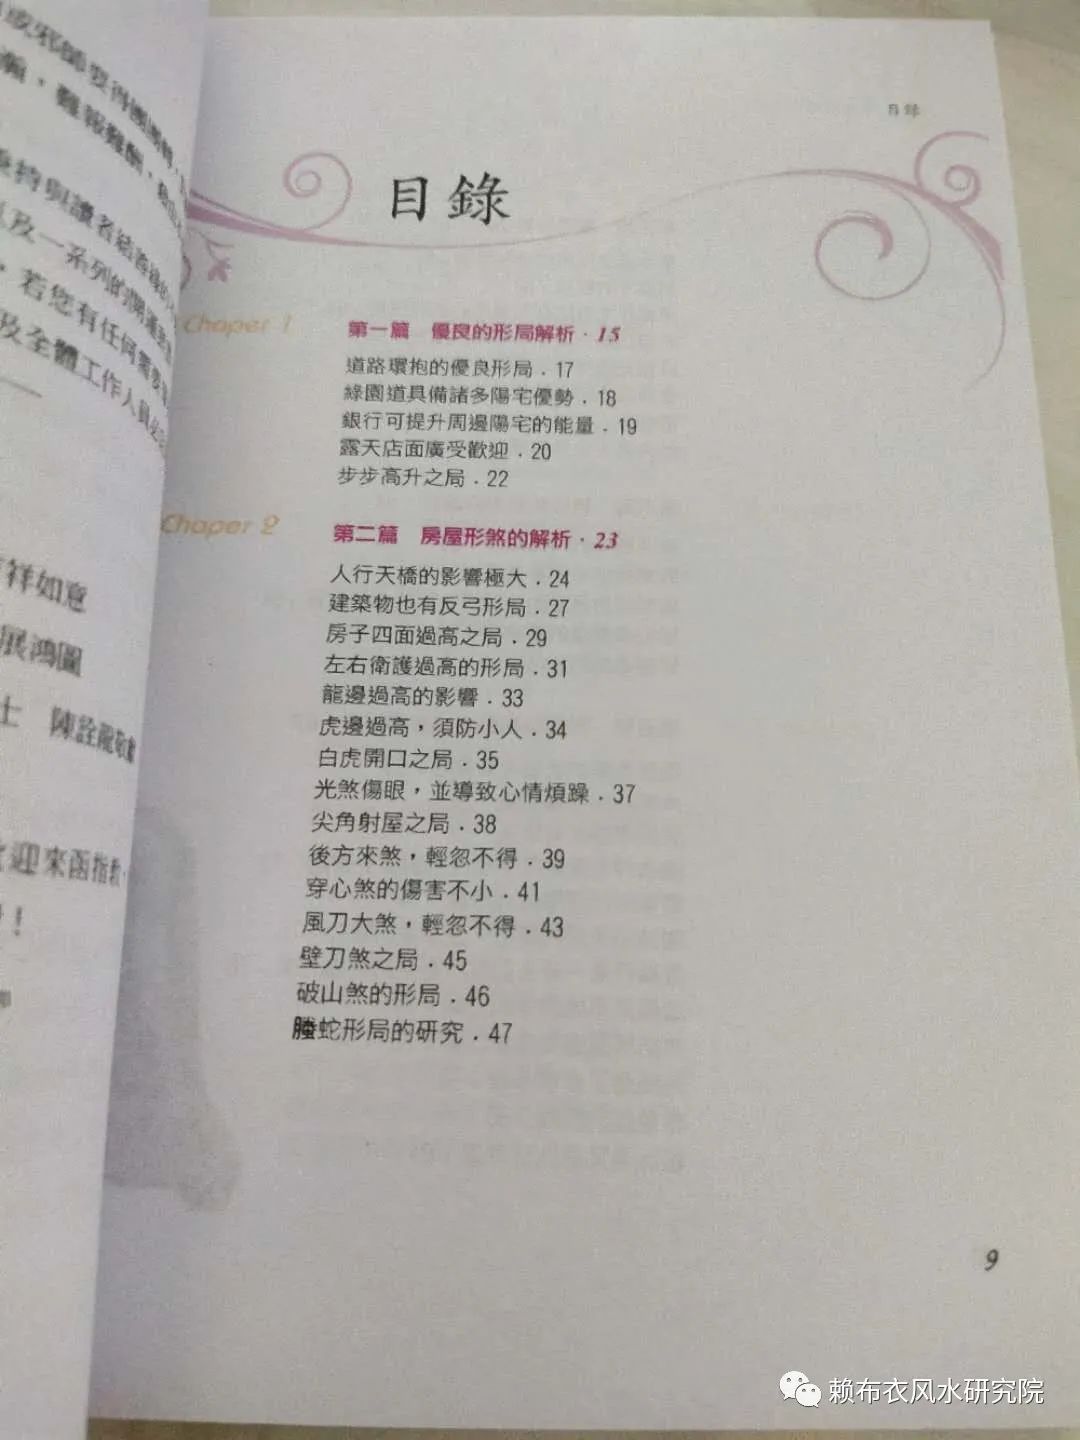 目錄
目錄
Chaper 1
第一篇 優良的形局解析·15
道路環抱的優良形局.17
綠園道具備諸多陽宅優勢.18
銀行可提升周邊陽宅的能量.19
露天店面廣受歡迎.20
步步高升之局.22
Chaper 2
第二篇 房屋形煞的解析·23
人行天橋的影響極大.24
建築物也有反弓形局.27
房子四面過高之局.29
左右衛護過高的形局.31
龍邊過高的影響.33
虎邊過高，須防小人.34
白虎開口之局.35
光煞傷眼，並導致心情煩躁.37
尖角射屋之局.38
後方來煞，輕忽不得.39
穿心煞的傷害不小.41
風刀大煞，輕忽不得.43
壁刀煞之局.45
破山煞的形局.46
螣蛇形局的研究.47
9
持與讀者結善緣
及一系列的開運
，若您有任何需要
及全體工作人員必
祥如意
展鴻圖
士 陳詮龍敬
迎來函指教
！
赖布衣风水研究院